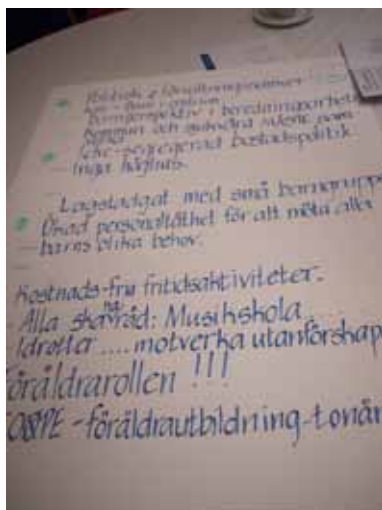 Politisk &
Barn i centrum
Barnperspektiv i beredningsarbete
Kommun och
Icke-segregerad bostadspolitik.
Inga höghus.
Lagstadgat med små barngrupp
Ökad personaltäthet för att möta alla
barns olika behov.
Kostnads-fria fritidsaktiviteter.
Alla ska ha råd: Musikskola
Idrotter .... motverka utanförskap
föräldrarollen !!!
COPE - föräldrautbildning-tonår